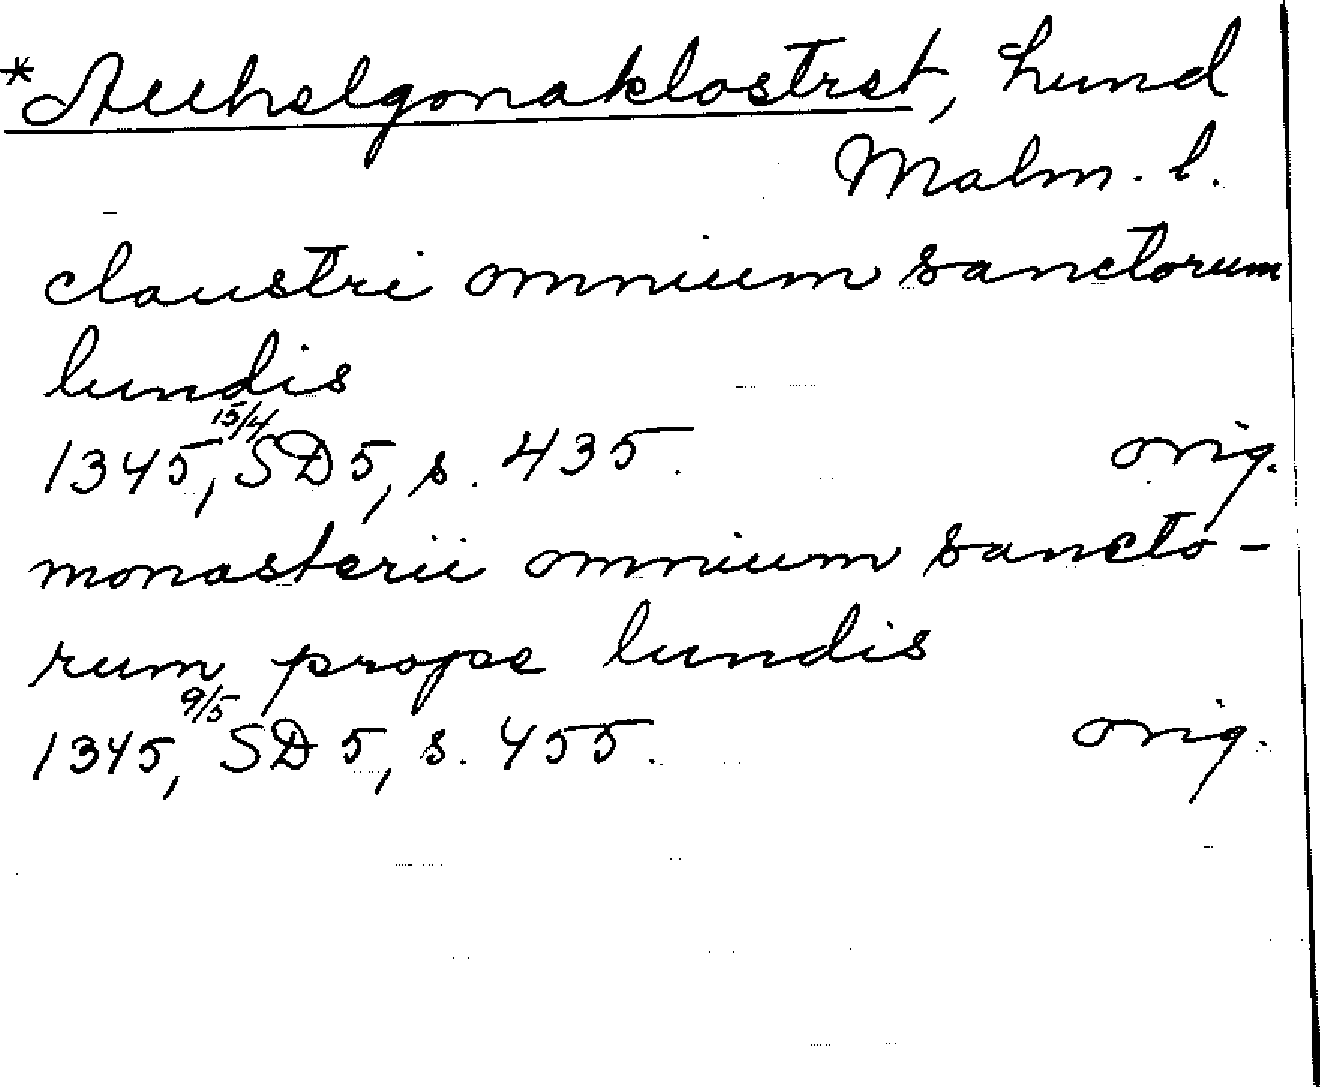 *Allhelgonaklostret, Lund
Malm. l.
claustri omnium sanctorum
lundis
1345, 15/4 SD 5, s. 435. orig.
monasterii omnium sancto-
rum prope lundis
1345, 9/5 SD 5, s. 455. orig.